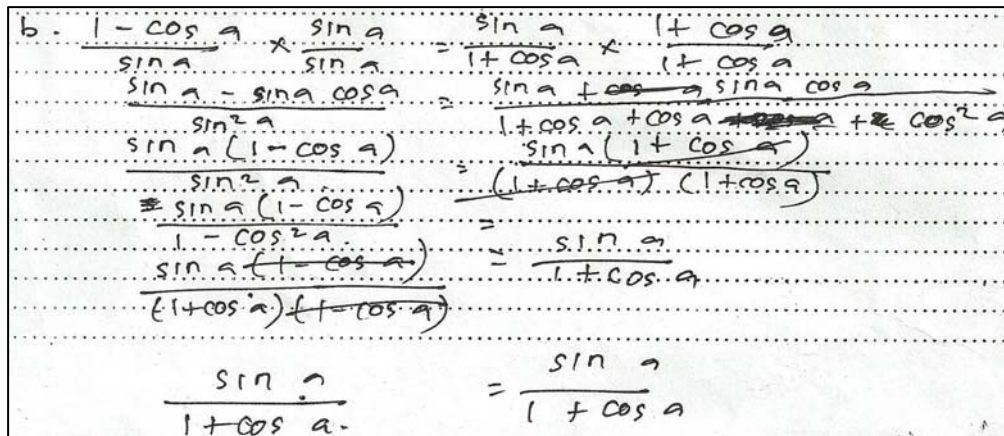 b. (1 - cos a)/(sin a) × (sin a)/(sin a) = (sin a)/(1 + cos a) × (1 + cos a)/(1 + cos a)
(sin a - sin a cos a)/(sin² a) = (sin a + sin a cos a)/(1 + cos a + cos a + cos² a)
(sin a (1 - cos a))/(sin² a.) = (sin a (1 + cos a))/((1 + cos a) (1 + cos a))
(sin a (1 - cos a))/(1 - cos² a.) =
(sin a (1 - cos a))/((1 + cos a) (1 - cos a)) = (sin a)/(1 + cos a)
(sin a)/(1 + cos a.) = (sin a)/(1 + cos a)